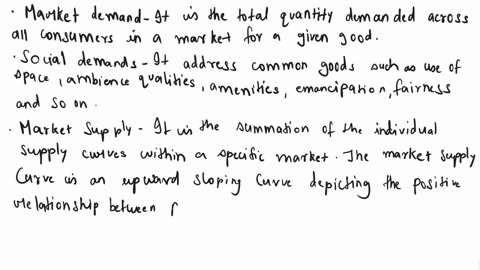 • Market demand - It is the total quantity demanded across
all consumers in a market for a given good.
• Social demands - It address common goods such as use of
space, ambience qualities, amenities, emancipation, fairness
and so on.
• Market Supply - It is the summation of the individual
supply curves within a specific market. The market supply
curve is an upward sloping curve depicting the positive
relationship between p